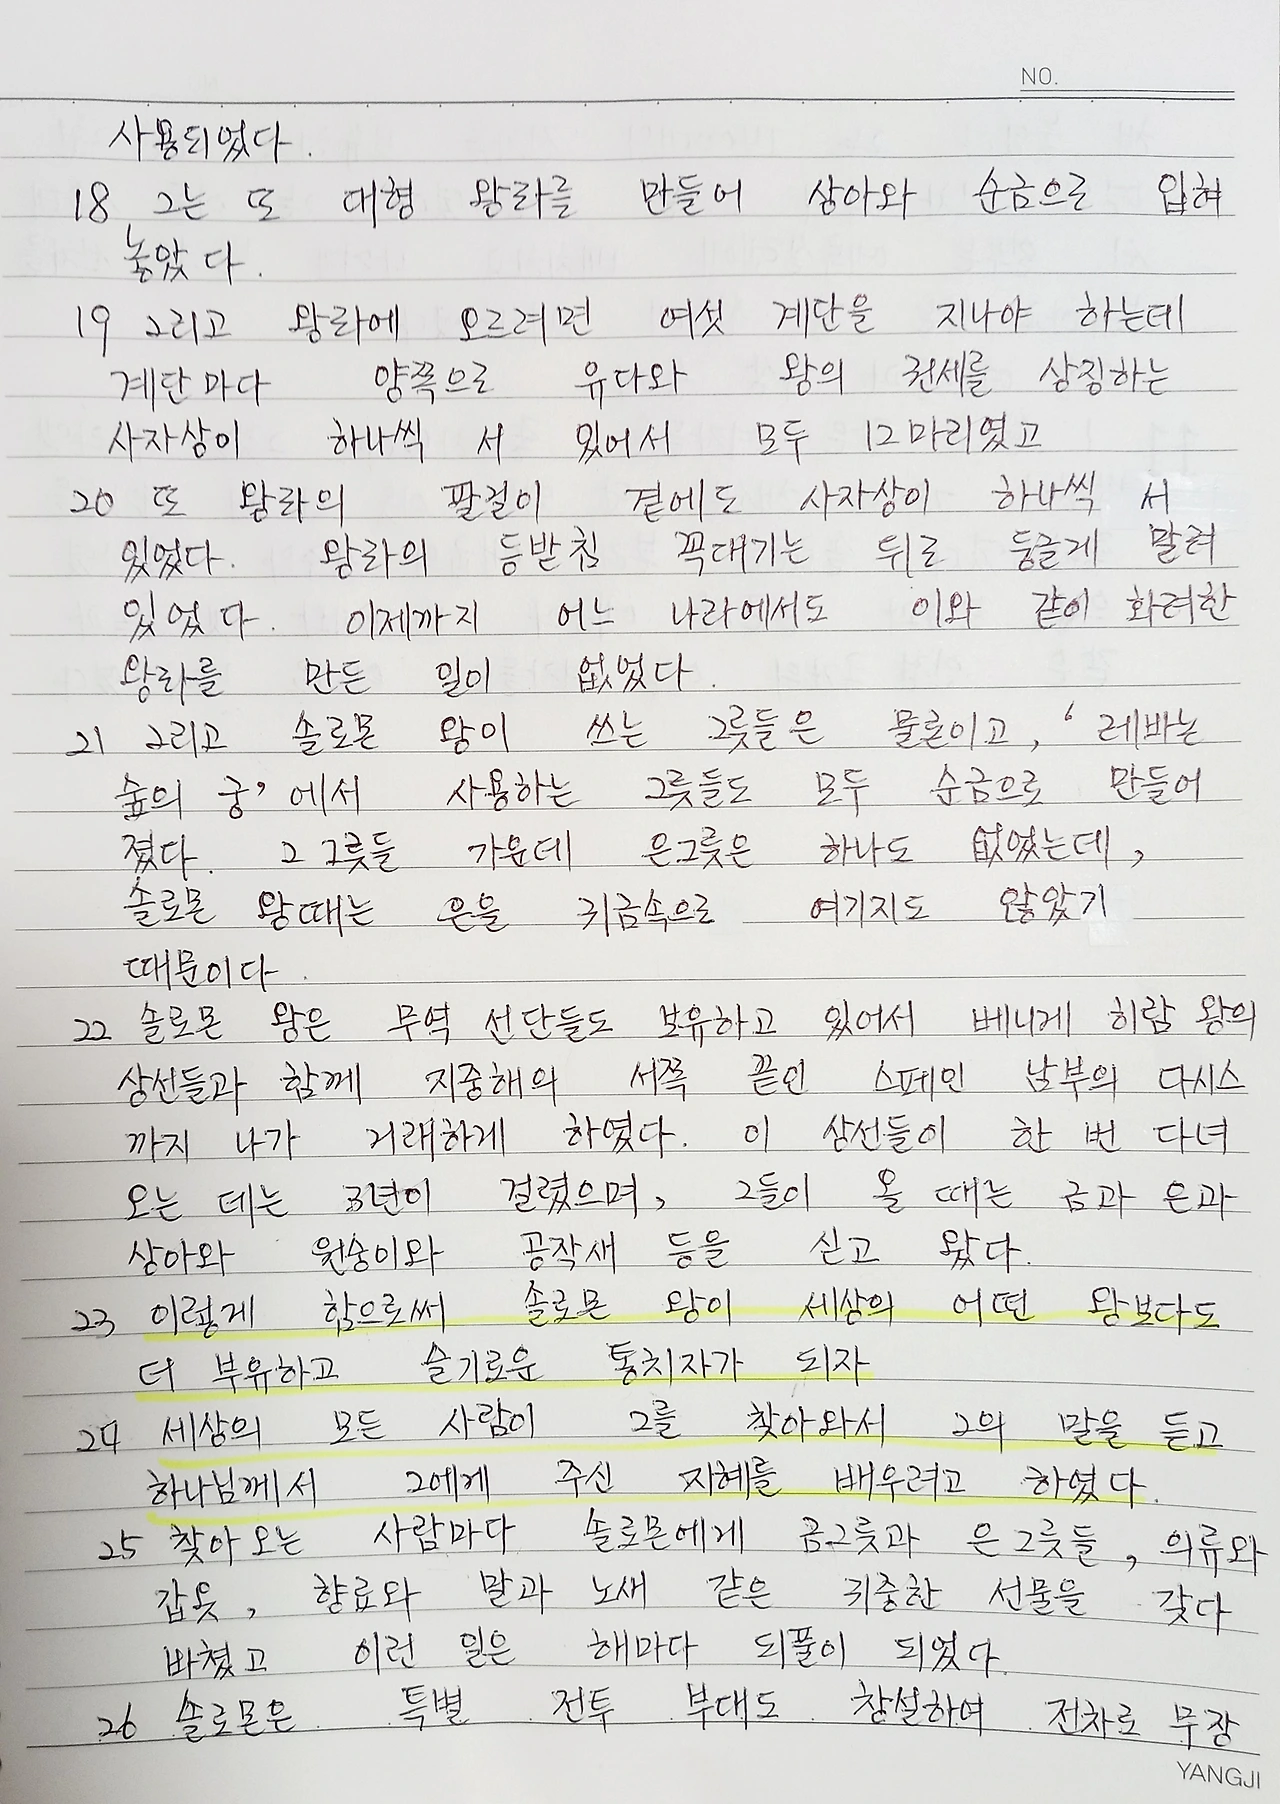 NO.
사용되었다.
18 그는 또 대형 왕좌를 만들어 상아와 순금으로 입혀
놓았다.
19 그리고 왕좌에 오르려면 여섯 계단을 지나야 하는데
계단마다 양쪽으로 유다와 왕의 권세를 상징하는
사자상이 하나씩 서 있어서 모두 12마리였고
20 또 왕좌의 팔걸이 곁에도 사자상이 하나씩 서
있었다. 왕좌의 등받침 꼭대기는 뒤로 둥글게 말려
있었다. 이제까지 어느 나라에서도 이와 같이 화려한
왕좌를 만든 일이 없었다.
21 그리고 솔로몬 왕이 쓰는 그릇들은 물론이고, '레바논
숲의 궁'에서 사용하는 그릇들도 모두 순금으로 만들어
졌다. 그 그릇들 가운데 은그릇은 하나도 없었는데,
솔로몬 왕때는 은을 귀금속으로 여기지도 않았기
때문이다.
22 솔로몬 왕은 무역 선단들도 보유하고 있어서 베니게 히람 왕의
상선들과 함께 지중해의 서쪽 끝인 스페인 남부의 다시스
까지 나가 거래하게 하였다. 이 상선들이 한 번 다녀
오는 데는 3년이 걸렸으며, 그들이 올 때는 금과 은과
상아와 원숭이와 공작새 등을 싣고 왔다.
23 이렇게 함으로써 솔로몬 왕이 세상의 어떤 왕보다도
더 부유하고 슬기로운 통치자가 되자
24 세상의 모든 사람이 그를 찾아와서 그의 말을 듣고
하나님께서 그에게 주신 지혜를 배우려고 하였다.
25 찾아오는 사람마다 솔로몬에게 금그릇과 은그릇들, 의류와
갑옷, 향료와 말과 노새 같은 귀중한 선물을 갖다
바쳤고 이런 일은 해마다 되풀이 되었다.
26 솔로몬은 특별 전투 부대도 창설하여 전차로 무장
YANGJI